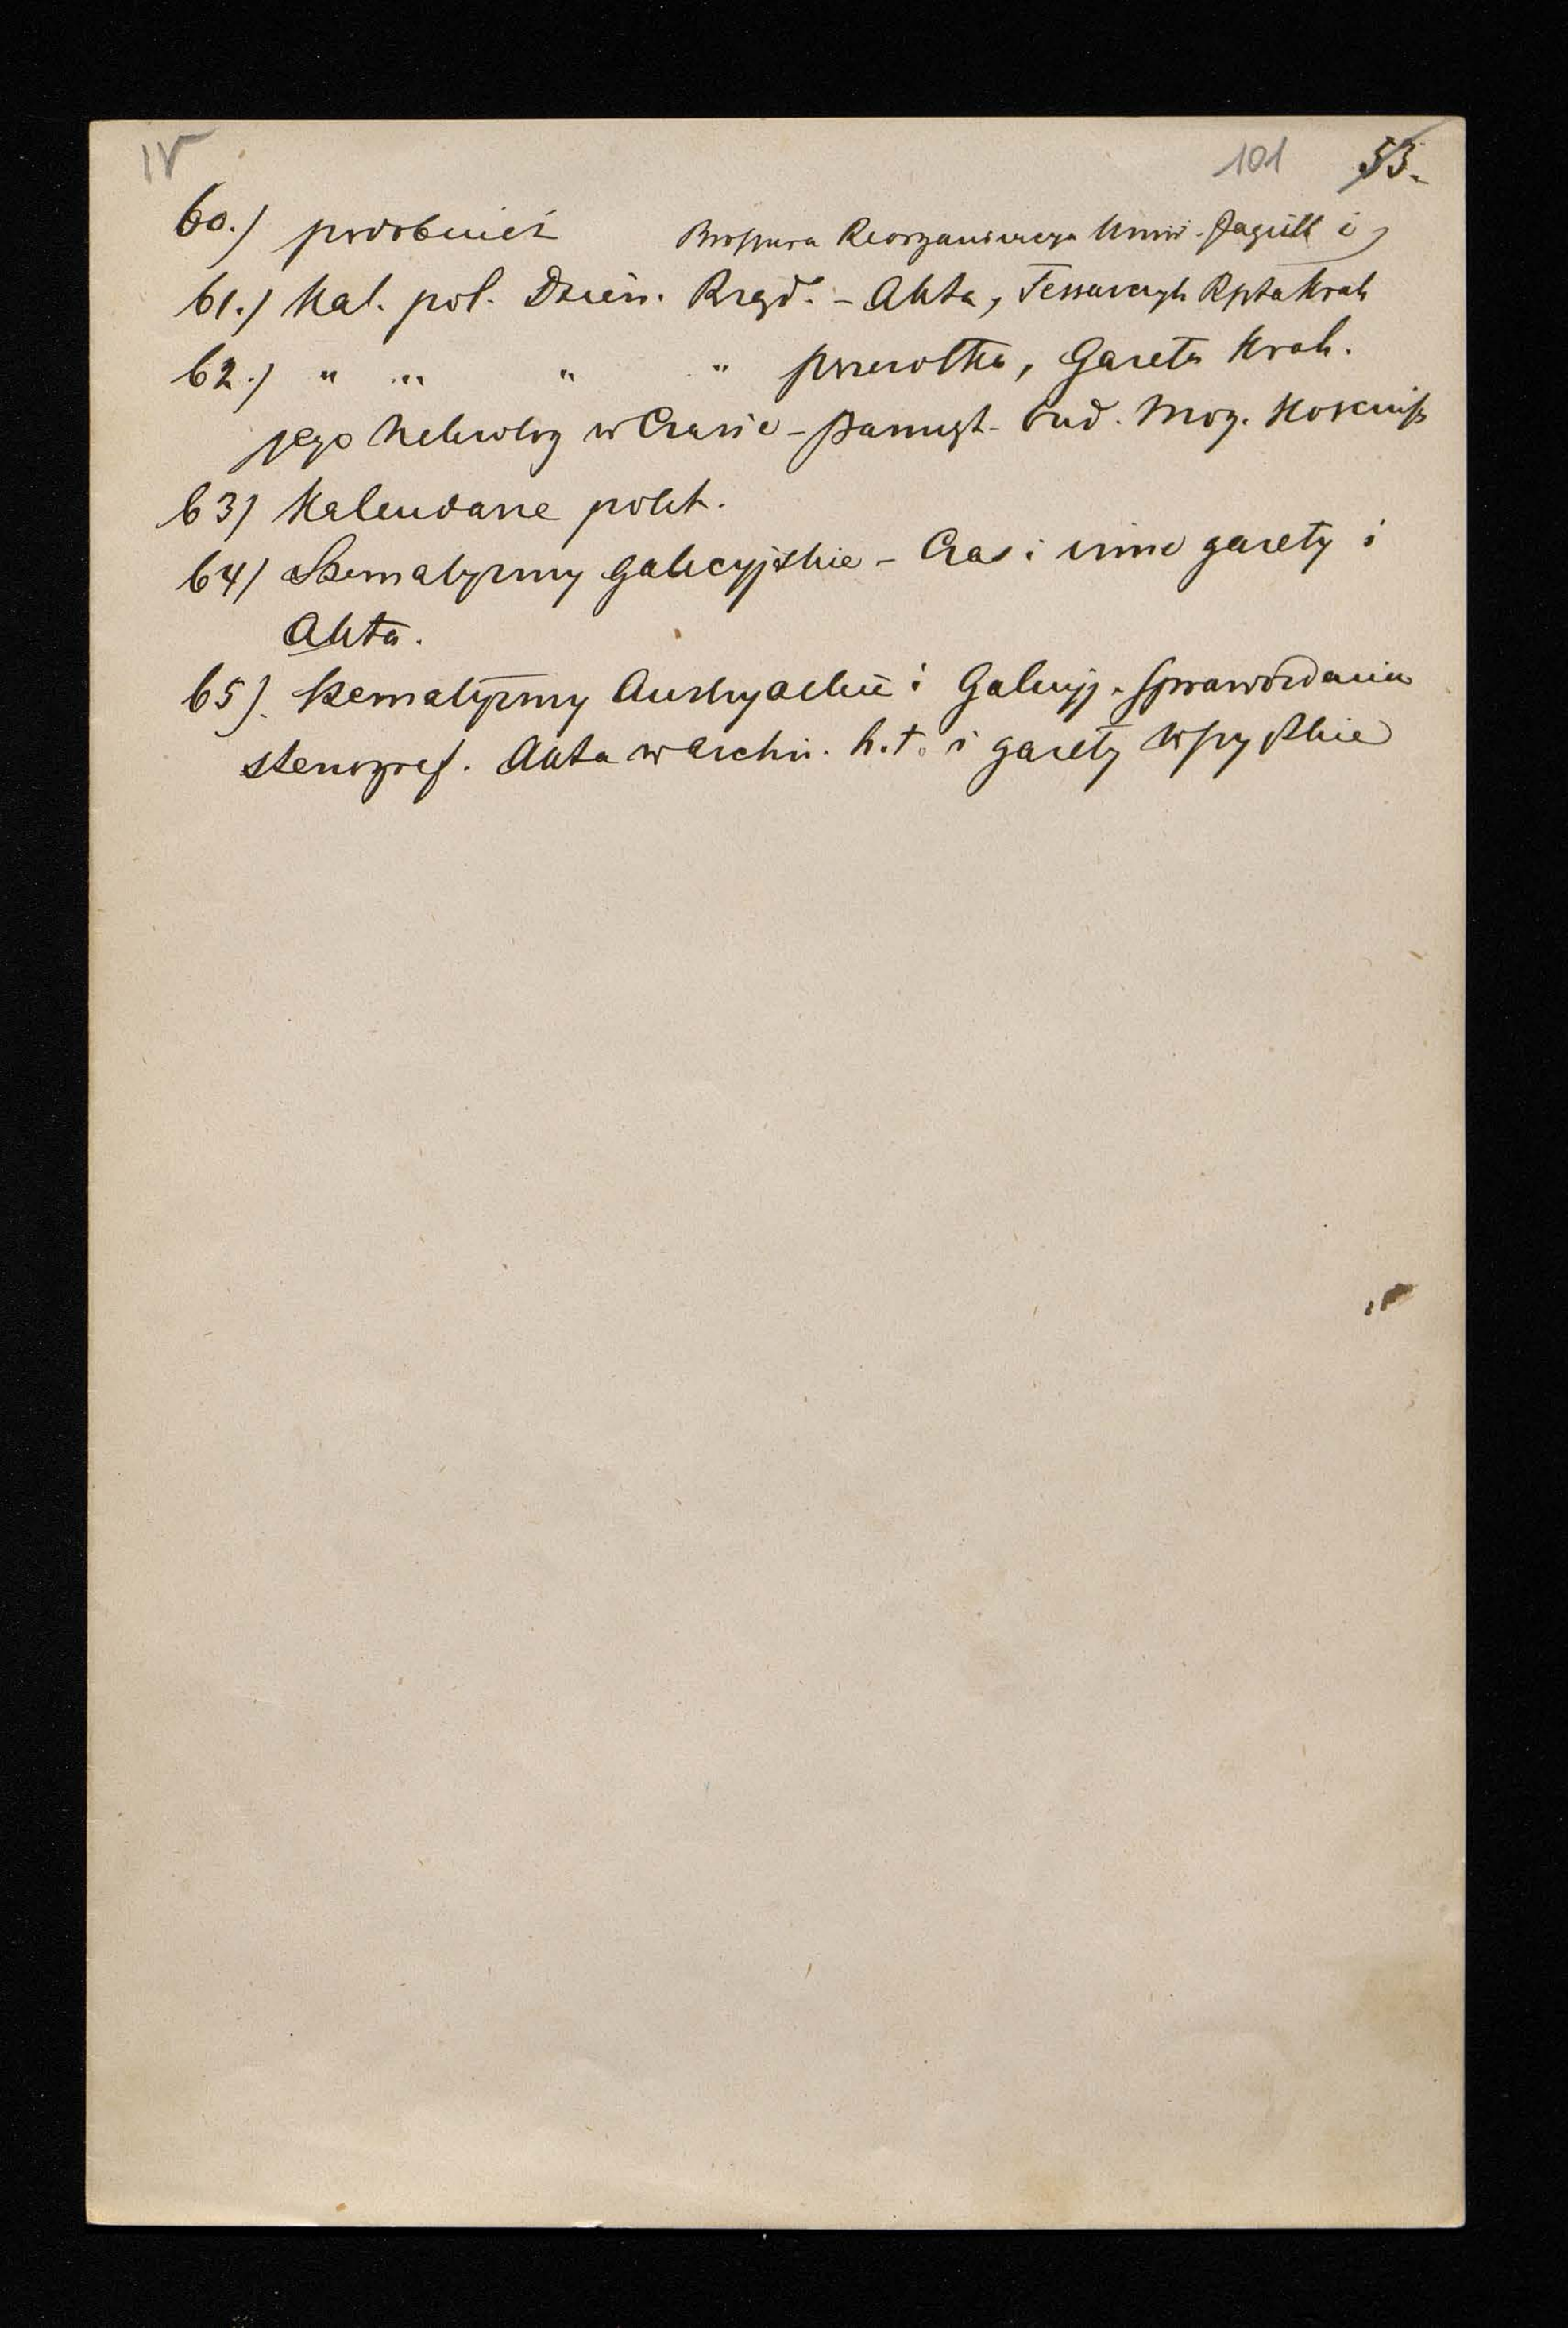 IV 101 53.
60.) podobnież Broszura Reorganizacya Uniw. Jagiell i
61.) Kal. pol. Dzien. Rząd. – Akta, Tessarczyk Rpta Krak
62.) " " " " Pszczółka, Gazeta Krak.
jego Nekrolog w Czasie – Pamięt. bud. Mog. Kościusz
63) Kalendarze polit.
64) Szematyzmy galicyjskie – Czas i inne gazety i
Akta.
65). Szematyzmy Austryackie i Galicyj. Sprawozdania
stenograf. Akta w Archiw. h.t. i gazety wszystkie